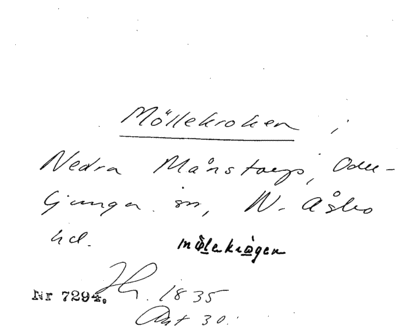 Möllekroken i
Nedra Månstorp, Oder-
ljunga sn, N. Åsbo
hd.
mölekrågen
Nr 7294. Hr. 1835
Akt 30.